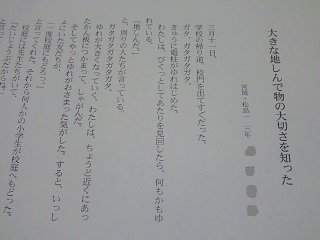 大きな地しんで物の大切さを知った
宮城・松島一 三年
三月十一日。
学校の帰り道、校門を出てすぐだった。
ガタ、ガタガタガタ。
きゅうに電柱がゆれはじめた。
わたしは、びくっとしてあたりを見回したら、何もかもゆ
れている。
「地しんだ。」
と、周りの人たちが言っている。
ガタガタガタガタガタ。
ゆれが大きくなっていく。わたしは、ちょうど近くにあっ
たかん板につかまって、しゃがんだ。
そしてやっとゆれがおさまった気がした。すると、いっし
ょにいた友だちが、
「一度校庭にもどろっ。」
と言ってくれた。それから何人かの小学生が校庭へもどった。
校庭には先生たちがいて、